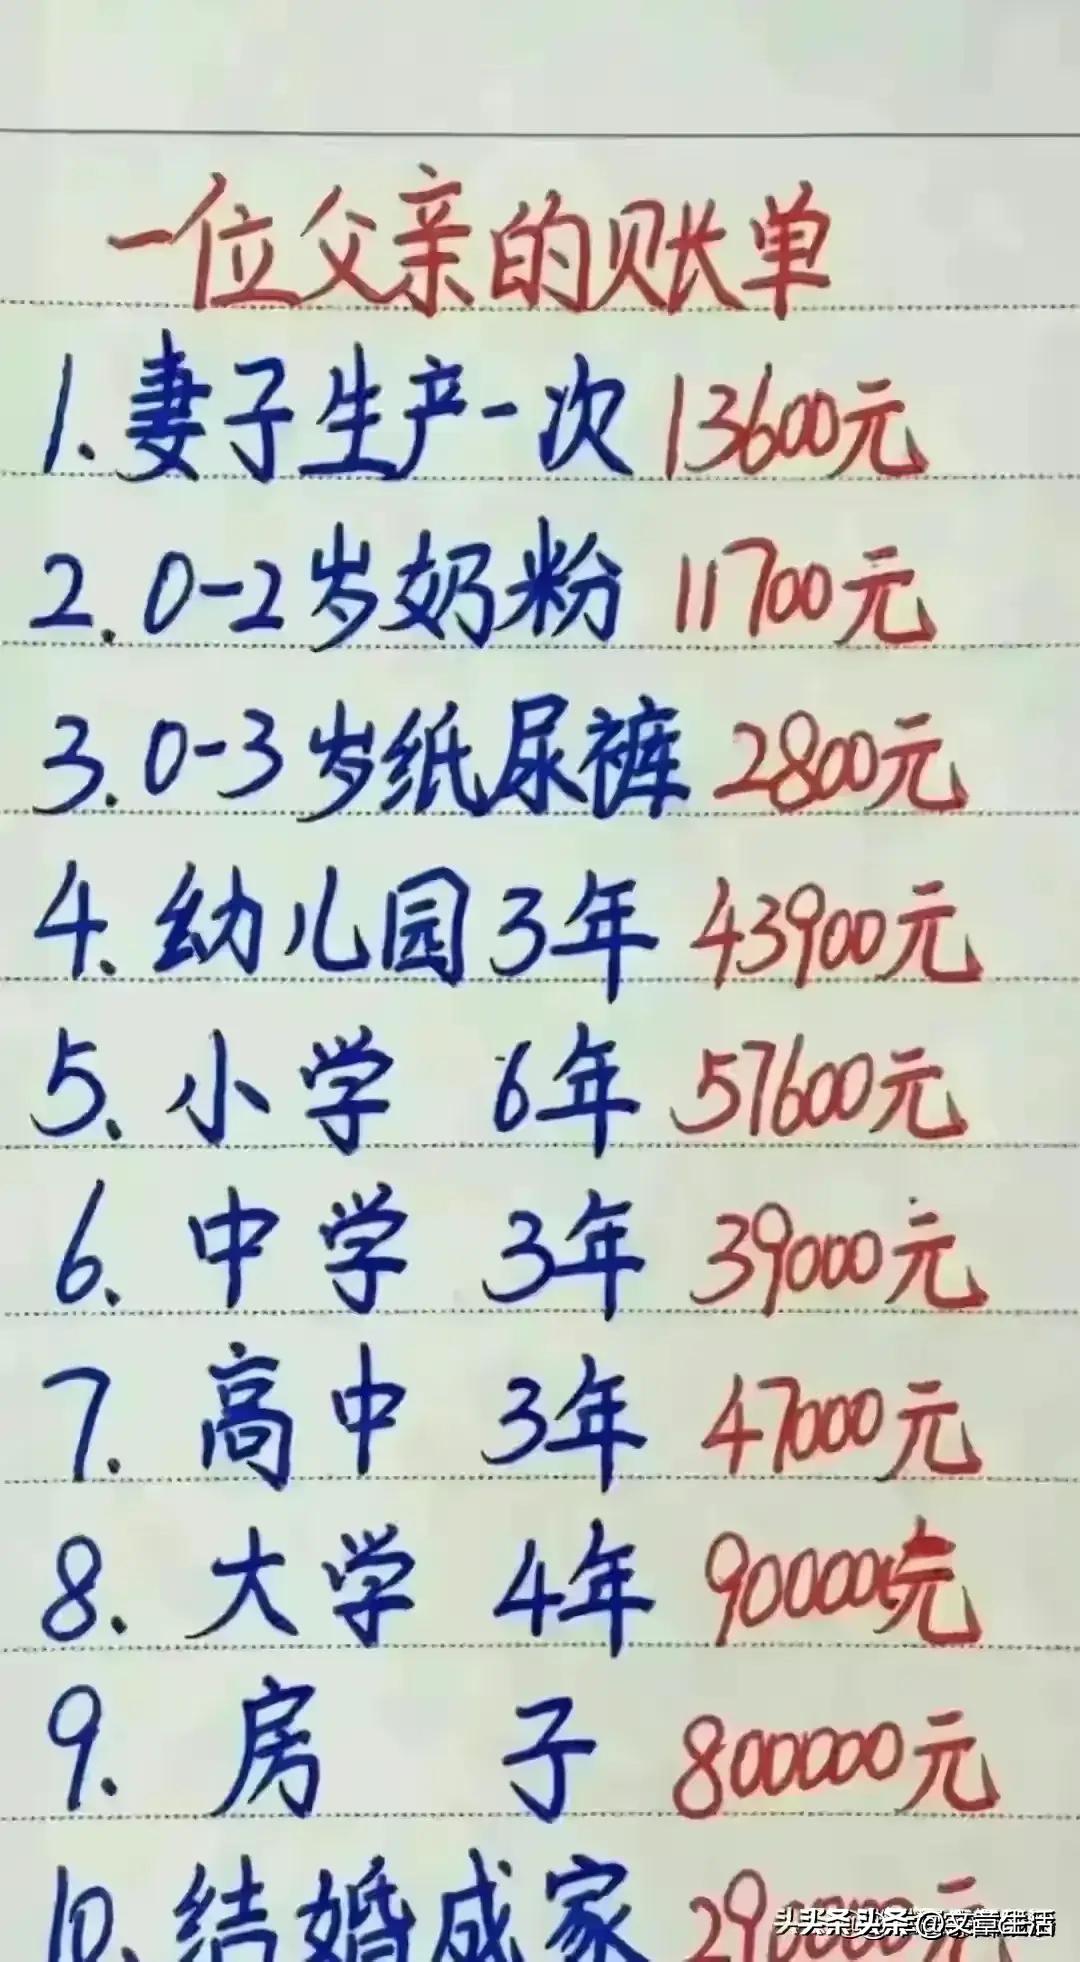 一位父亲的账单
1. 妻子生产一次 13600元
2. 0-2岁奶粉 11700元
3. 0-3岁纸尿裤 2800元
4. 幼儿园3年 43900元
5. 小学 6年 57600元
6. 中学 3年 39000元
7. 高中 3年 47000元
8. 大学 4年 90000元
9. 房子 800000元
10. 结婚成家 290000元
头条 @文章生活